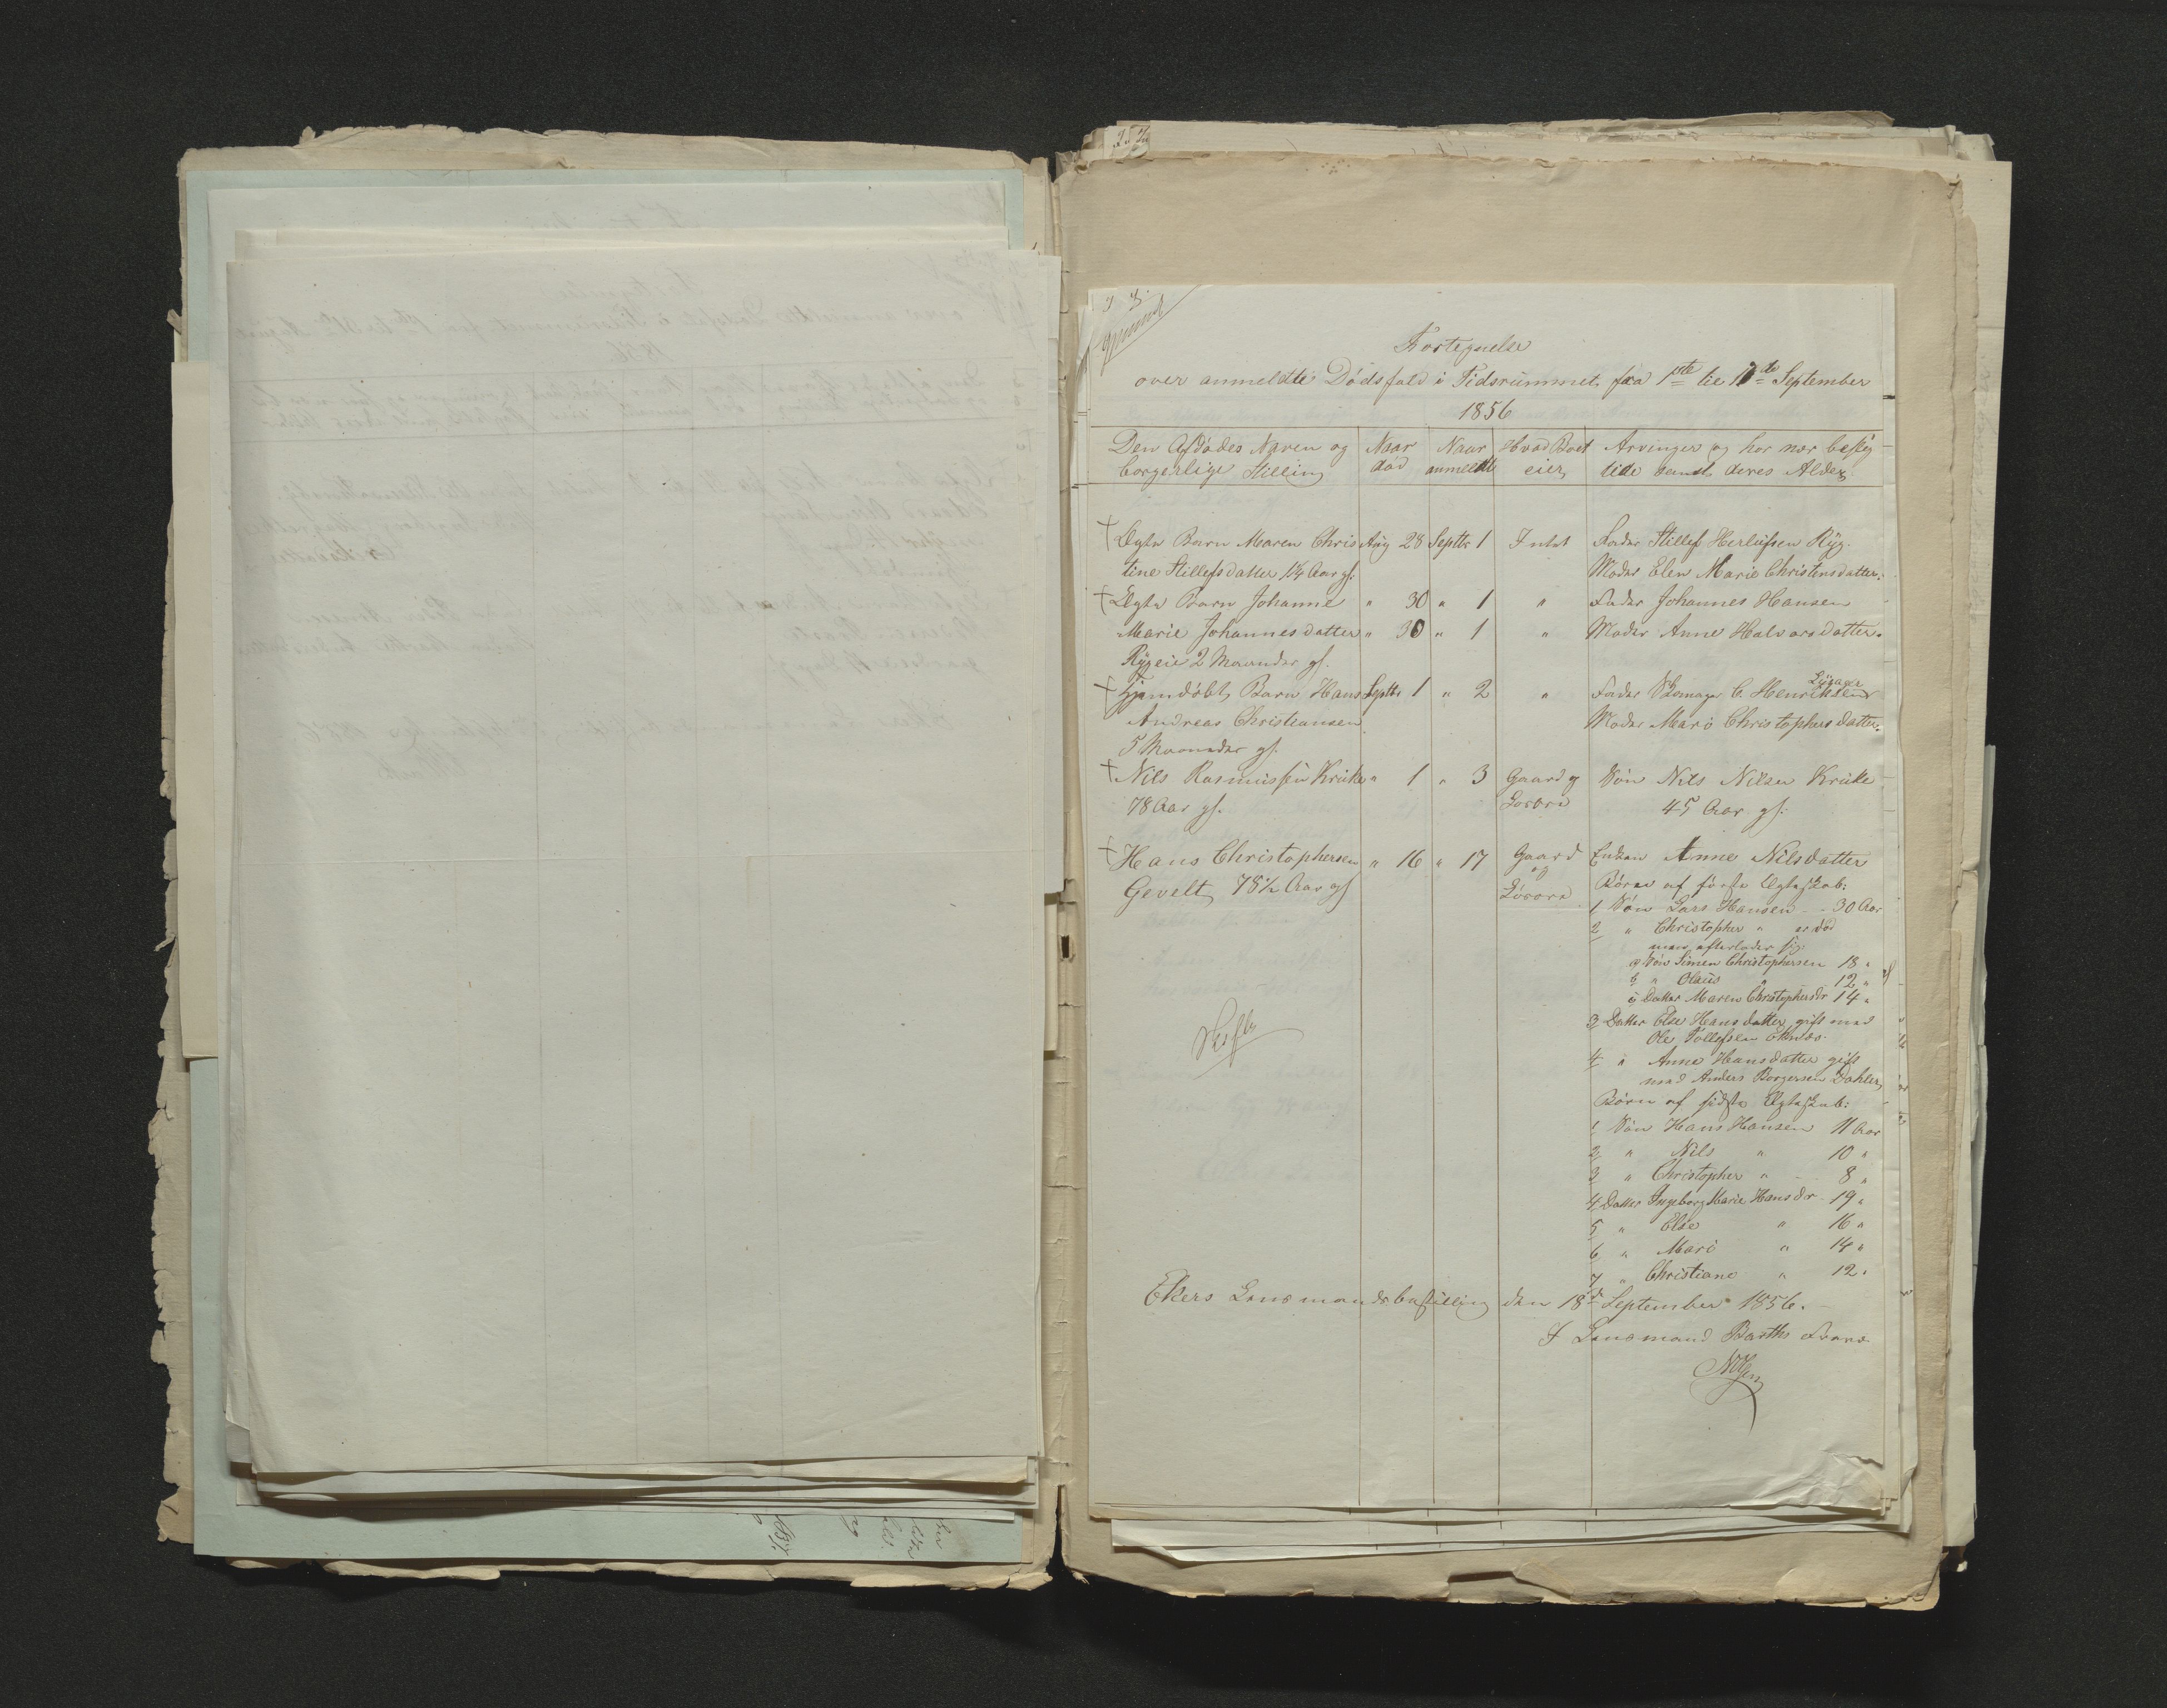 Fortegnelse
over anmeldte Dødsfald i Tidsrummet fra 1ste til 17de September
1856
Den Afdødes Naven og borgerlige Stilling
Naar død
Naar anmeldt
Hvad Boet eier
Arvinger og hvor nær beslegtede samt deres Alder
† Ægte Barn Maren Chris Aug 28 Septbr 1 Intet Fader Stillef Herlufsen Ryg.
tine Stillefsdatter 1¼ Aar gl. Moder Elen Marie Christensdatter.
† Ægte Barn Johanne " 30 " 1 " Fader Johannes Hansen
Marie Johannesdatter " 30 " 1 " Moder Anne Halvorsdatter.
Rygeie 2 Maaneder gl.
† Hjemdøbt Barn Hans Septbr 1 " 2 " Fader C. Henriksen
Andreas Christiansen Moder Mari Christophersdatter.
5 Maaneder gl.
† Nils Rasmussen Kruke " 1 " 3 Gaard og Søn Nils Nilsen Kruke
78 Aar gl. Løsøre 45 Aar gl.
† Hans Christophersen " 16 " 17 Gaard Enken Anne Nilsdatter
og
Gevelt 78½ Aar gl Løsøre Børn af første Ægteskab:
1, Søn Lars Hansen - 30 Aar
2 " Christopher " er død
men efterlader sig
a Søn Simen Christophersen 18 "
b " Olaus " 12 "
c Datter Maren Christophersdr 14 "
3, Datter Else Hansdatter gift med
Ole Tollefsen
4 " Anne Hansdatter gift
med Anders Borgersen Dahler
Børn af sidste Ægteskab:
1 Søn Hans Hansen 11 Aar
2, " Nils " 10 "
3 " Christopher " - 8 "
4, Datter Ingeborg Marie Hansdr 19 "
5 " Else " 16 "
6 " Mari " 14 "
7 " Christiane " 12 "
Ekers Lensmandsbestilling den 18d September 1856.
I Lensmand Barths Fravær